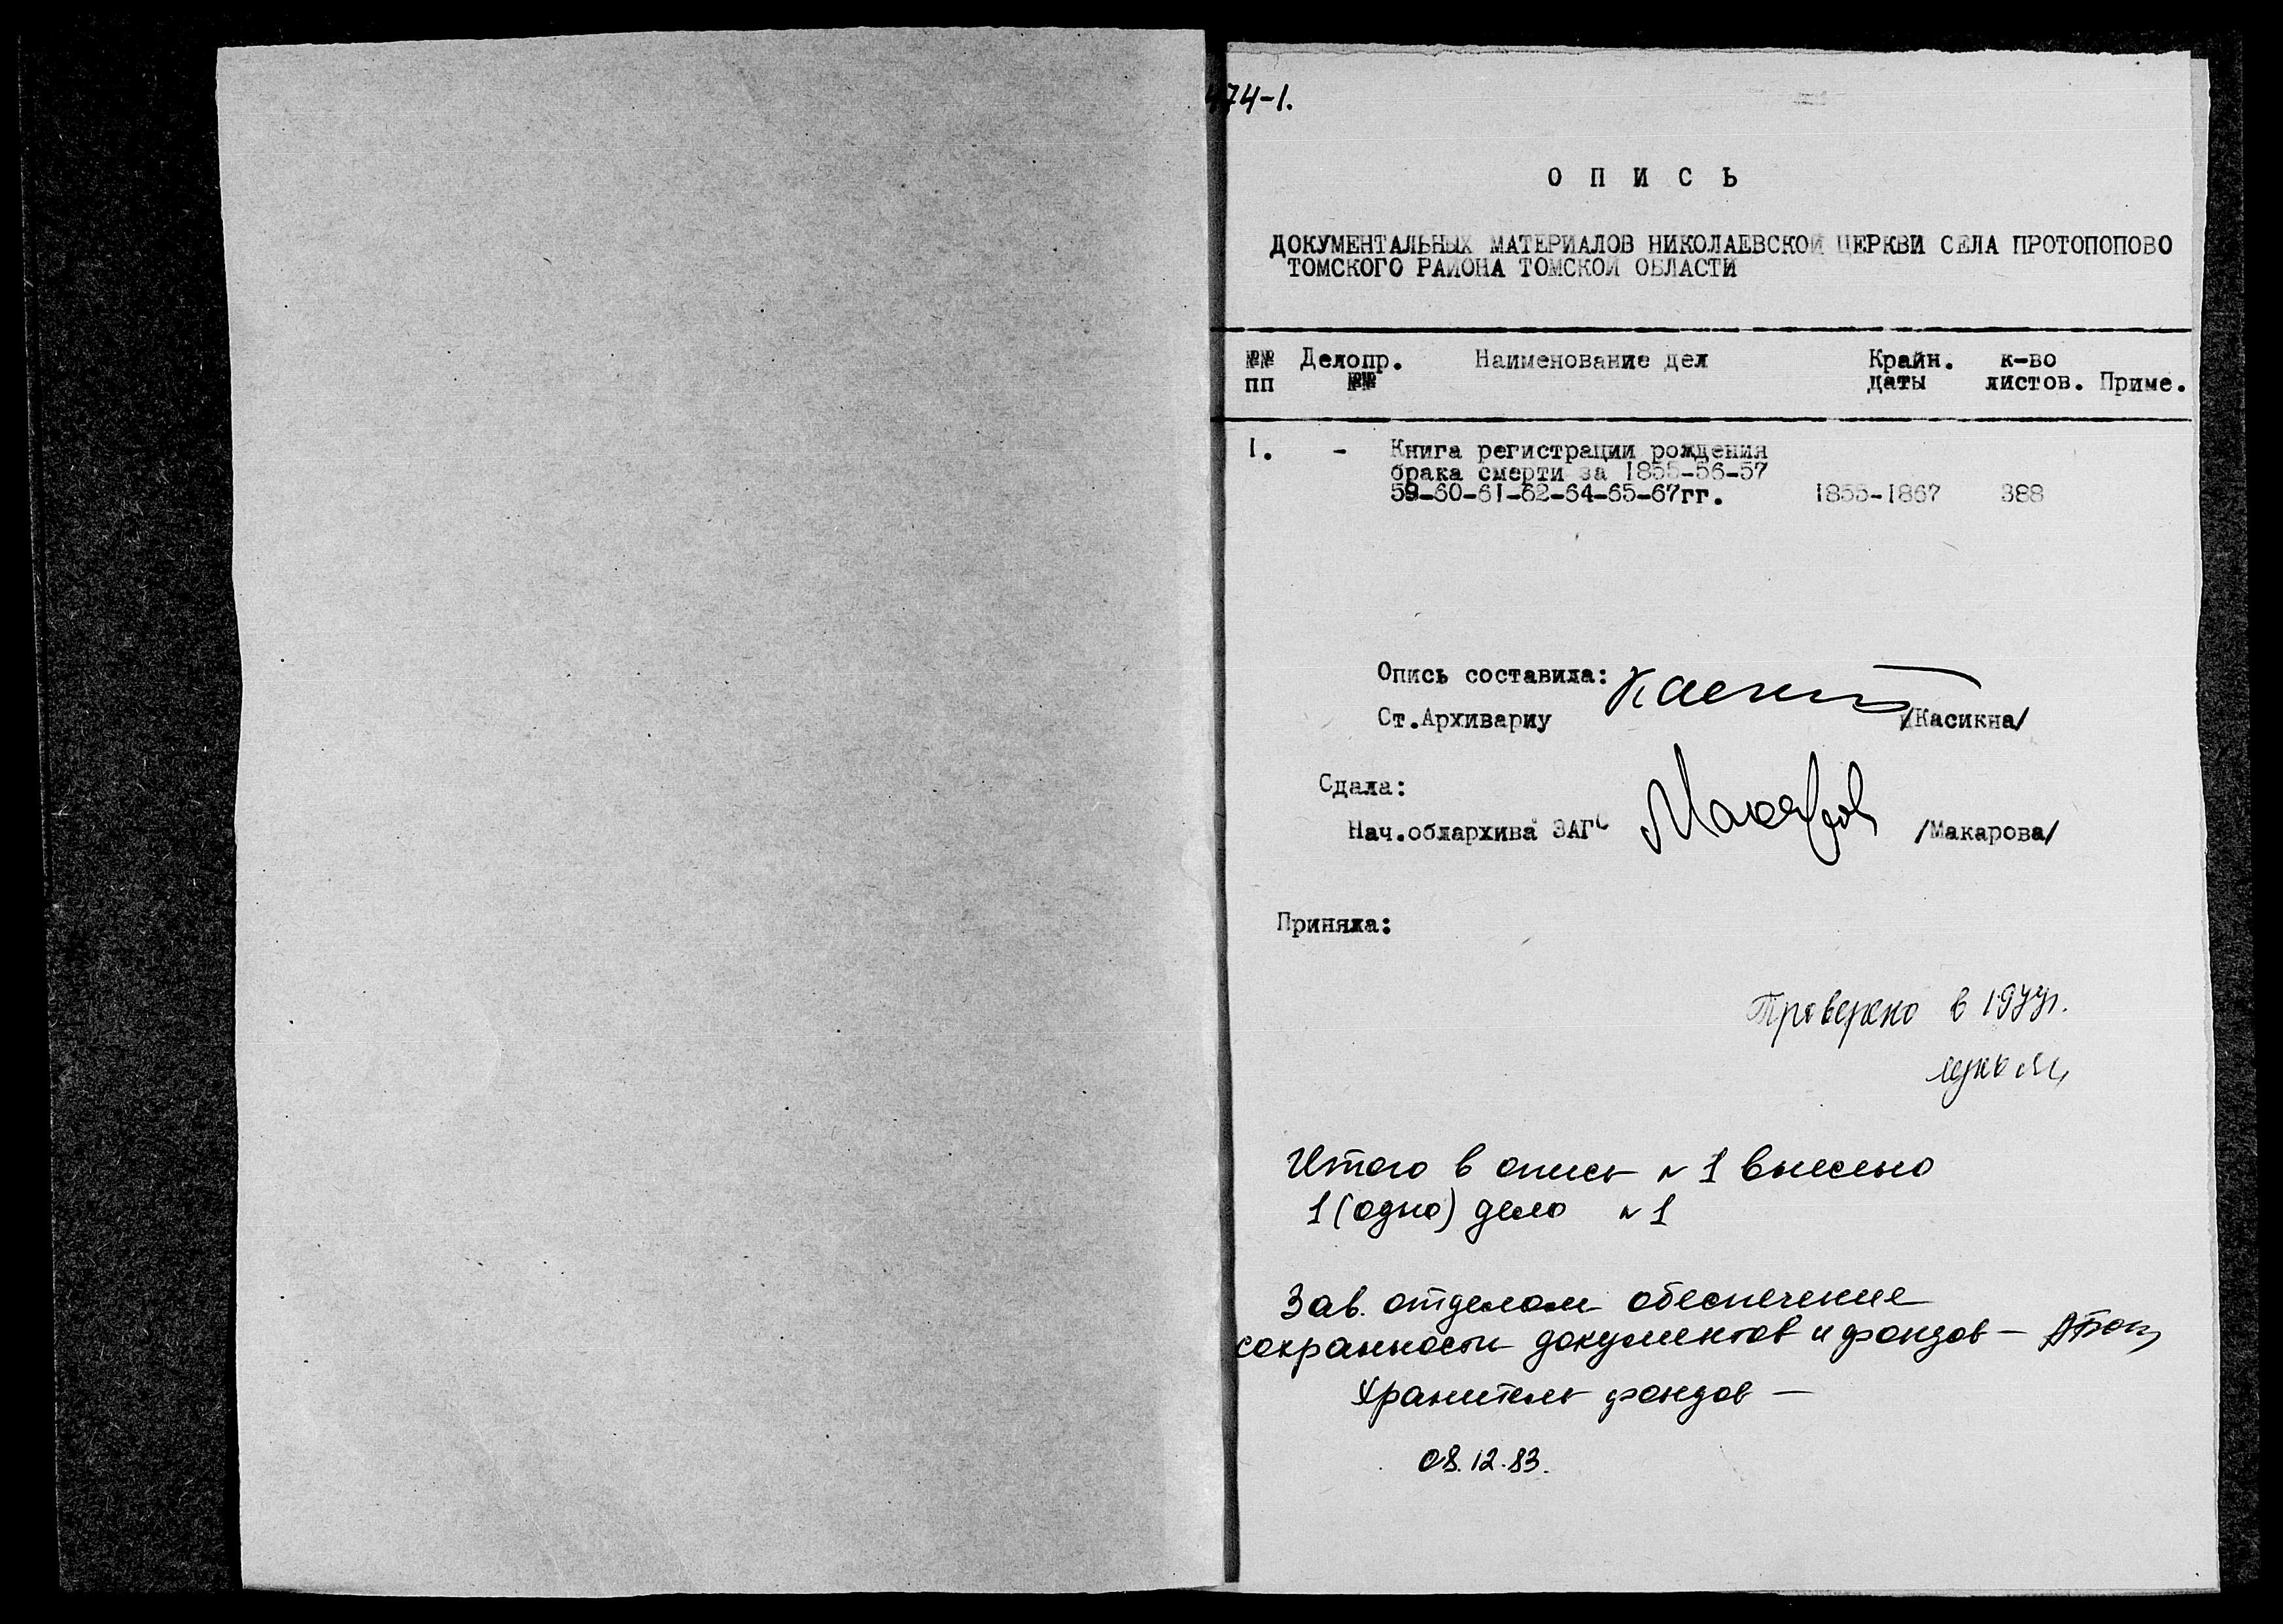 474-1.
О П И С Ь
ДОКУМЕНТАЛЬНЫХ МАТЕРИАЛОВ НИКОЛАЕВСКОЙ ЦЕРКВИ СЕЛА ПРОТОПОПОВО
ТОМСКОГО РАЙОНА ТОМСКОЙ ОБЛАСТИ
№№ Делопр. Наименование дел Крайн. к-во
пп №№ даты листов. Приме.
1. - Книга регистрации рождения
брака смерти за 1855-56-57
59-60-61-62-64-65-67гг. 1855-1867 388
Опись составила:
Ст.Архивариу /Касикна/
Сдала:
Нач.облархива ЗАГС /Макарова/
Приняла:
Проверено в 1977г.
Итого в опись № 1 внесено
1 (одно) дело № 1
Зав. отделом обеспечение
сохранности документов и фондов —
Хранитель фондов —
08.12.83.